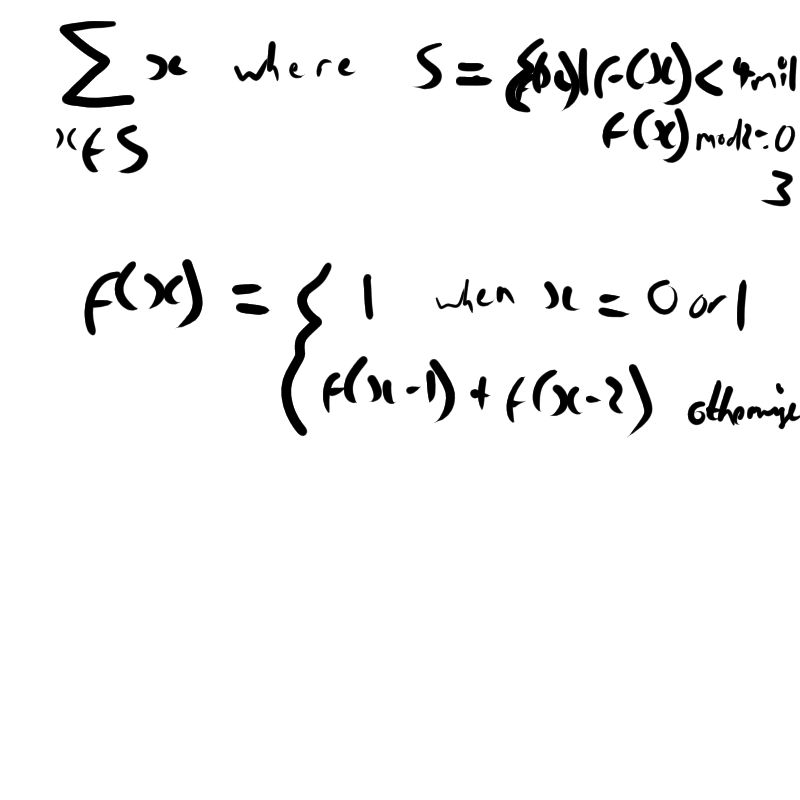 ∑ x where S = {f(x) | f(x) < 4mil
x∈S f(x) mod 2 = 0
3
f(x) = { 1 when x = 0 or 1
f(x-1) + f(x-2) otherwise